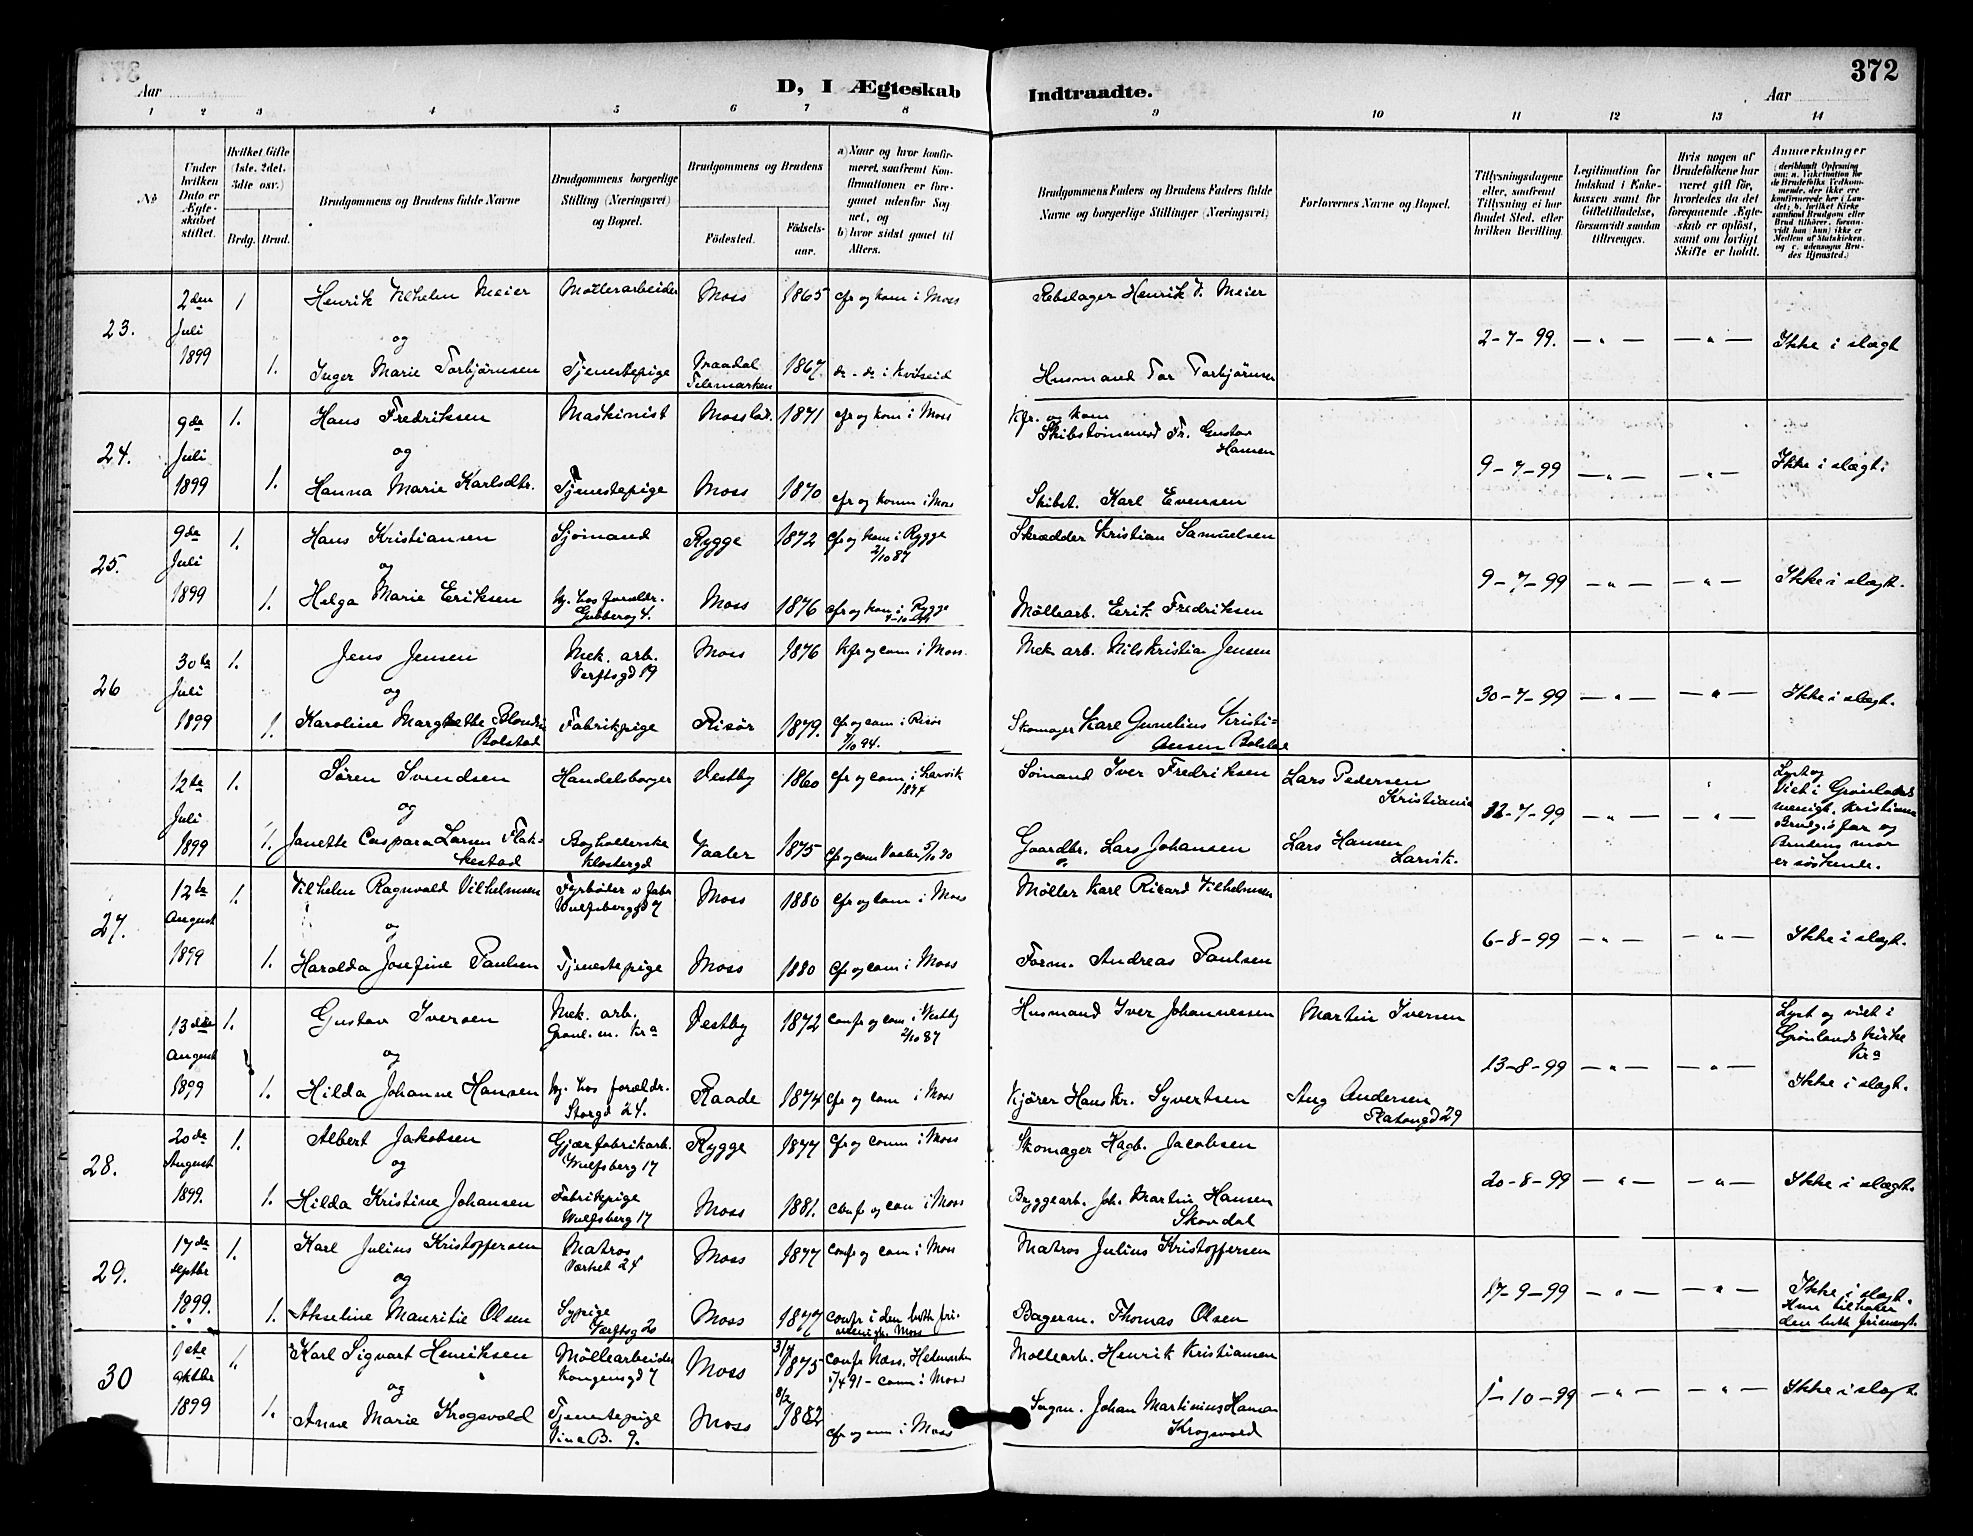 372
Aar
D, I Ægteskab Indtraadte.
Aar
1 2 3 4 5 6 7 8 9 10 11 12 13 14
No
Under hvilken Dato er Ægteskabet stiftet.
Hvilket Gifte (1ste, 2det, 3die osv.)
Brdg. Brud.
Brudgommens og Brudens fulde Navne
Brudgommens borgerlige Stilling (Næringsvei) og Bopæl.
Brudgommens og Brudens
Fødested. Fødselsaar.
a) Naar og hvor konfirmeret, saafremt Konfirmationen er foregaaet udenfor Sognet, og
b) hvor sidst gaaet til Alters.
Brudgommens Faders og Brudens Faders fulde Navne og borgerlige Stillinger (Næringsvei)
Forlovernes Navne og Bopæl.
Tillysningsdagene eller, saafremt Tillysning ei har fundet Sted, efter hvilken Bevilling.
Legitimation for Indskud i Enkekassen samt for Giftetilladelse, forsaavidt saadan tiltrænges.
Hvis nogen af Brudefolkene har været gift før, hvorledes da det foregaaende Ægteskab er opløst, samt om lovligt Skifte er holdt.
Anmærkninger
23.
2den Juli 1899
1
Henrik Vilhelm Meier
Møllerarbeider
Moss
1865
cfr og kom i Moss
Rebslager Henrik V. Meier
og
1.
Inger Marie Torbjørnsen
Tjenestepige
Vraadal Telemarken
1867.
do - do i Kvitseid
Husmand Tor Torbjørnsen
2-7-99.
— " —
— " —
Ikke i slægt
24.
9de Juli 1899
1.
Hans Fredriksen
Maskinist
Mosslar.
1871
cfr og kom i Moss
Kfr. og kom
Skibstømmerd Fr. Gustav Hansen
og
1.
Hanna Marie Karlsdtr.
Tjenestepige
Moss
1870
cfr og komm i Moss
Skibst. Karl Evensen
9-7-99
— " —
— " —
Ikke i slægt.
25.
9de Juli 1899
1.
Hans Kristiansen
Sjømand
Rygge
1872
cfr og kom i Rygge
2/10 87
Skrædder Kristian Samuelsen
og
1.
Helga Marie Eriksen
hj. hos foreldr.
Moss
1876
cfr og kom i Rygge
Møllearb. Erik Fredriksen
9-7-99
— " —
— " —
Ikke i slægt.
26
30te Juli 1899
1.
Jens Jensen
Mek. arb.
Verftsgd 19
Moss
1876
Kfr og com i Moss.
Mek arb. Nils Kristian Jensen
og
1.
Karoline Margrethe Blondine
Bolstad
Fabrikpige
Risør
1879.
cfr og com i Risør
7/10 94.
Skomager Karl Gunelius Kristi-
ansen Bolstad
30-7-99
— " —
— " —
Ikke i slægt.
12te Juli 1899
1.
Søren Svendsen
Handelsborger
Vestby
1860
cfr og com i Larvik
1874
Sømand Iver Fredriksen
Lars Pedersen
Kristiania
og
1.
Janette Caspara Larsen Flak-
kestad
Bogholderske
Klostergd
Vaaler
1875
cfr og com Vaaler 5/10 90
Gaardbr. Lars Johansen
Lars Hansen
Larvik.
12-7-99
— " —
— " —
Lyst og
Viet i Grønlands
menigh. Kristiania
Brudg.s far og
Brudens mor
er søskende.
27.
12te August 1899
1.
Vilhelm Ragnvald Vilhelmsen
Fyrbøder v fabr
Wulfsberggd 7
Moss
1880
cfr og com i Moss
Møller Karl Rikard Vilhelmsen
og
1.
Haralda Josefine Paulsen
Tjenestepige
Moss
1880
cfr og com i Moss
Form. Andreas Paulsen
6-8-99
— " —
— " —
Ikke i slægt.
13de August 1899
1.
Gustav Iversen
Mek. arb.
Grønl. m. Kra
Vestby
1872
confr og com i Vestby
2/10 87
Husmand Iver Johannessen
Martin Iversen
og
1.
Hilda Johanne Hansen
hj. hos forældr.
Storgd 24.
Raade
1874
cfr og com i Moss
Kjører Hans Kr. Syvertsen
Aug Andersen
Platougd 29
13-8-99
— " —
— " —
Lyst og viet i
Grønlands Kirke
Kra
Ikke i slægt.
28.
20de August 1899.
1.
Albert Jakobsen
Gjærfabrikarb.
Wulfsberg 17
Rygge
1877
cfr og comm i Moss
Skomager Hagb. Jacobsen
og
1.
Hilda Kristine Johansen
Fabrikpige
Wulfsberg 17
Moss
1881.
confr og com i Moss
Bryggearb. Joh. Martin Hansen
Skovdal
20-8-99
— " —
— " —
Ikke i slægt.
29.
17de septbr 1899.
1.
Karl Julius Kristoffersen
Matros
Værket 24
Moss
1877
confr og com i Moss
Matros Julius Kristoffersen
og
1.
Akseline Mauritie Olsen
Sypige
Værftsg 20
Moss
1877
confr i den luth fri-
menigh. Moss
Bagerm. Thomas Olsen
17-9-99
— " —
— " —
Ikke i slægt.
Hun tilhører
den luth frimengt.
30
1ste oktbr 1899
1.
Karl Sigvart Henriksen
Møllearbeider
Kongensgd 7
Moss
1875
confr Næss, Hedmarken
com i Moss
Møllearb. Henrik Kristiansen
og
1.
Anne Marie Krogsvold
Tjenestepige
Moss
8/2
1882
cfr og com i Moss
Johan Martinius Hansen
Krogsvold
1-10-99
— " —
— " —
Ikke i slægt.